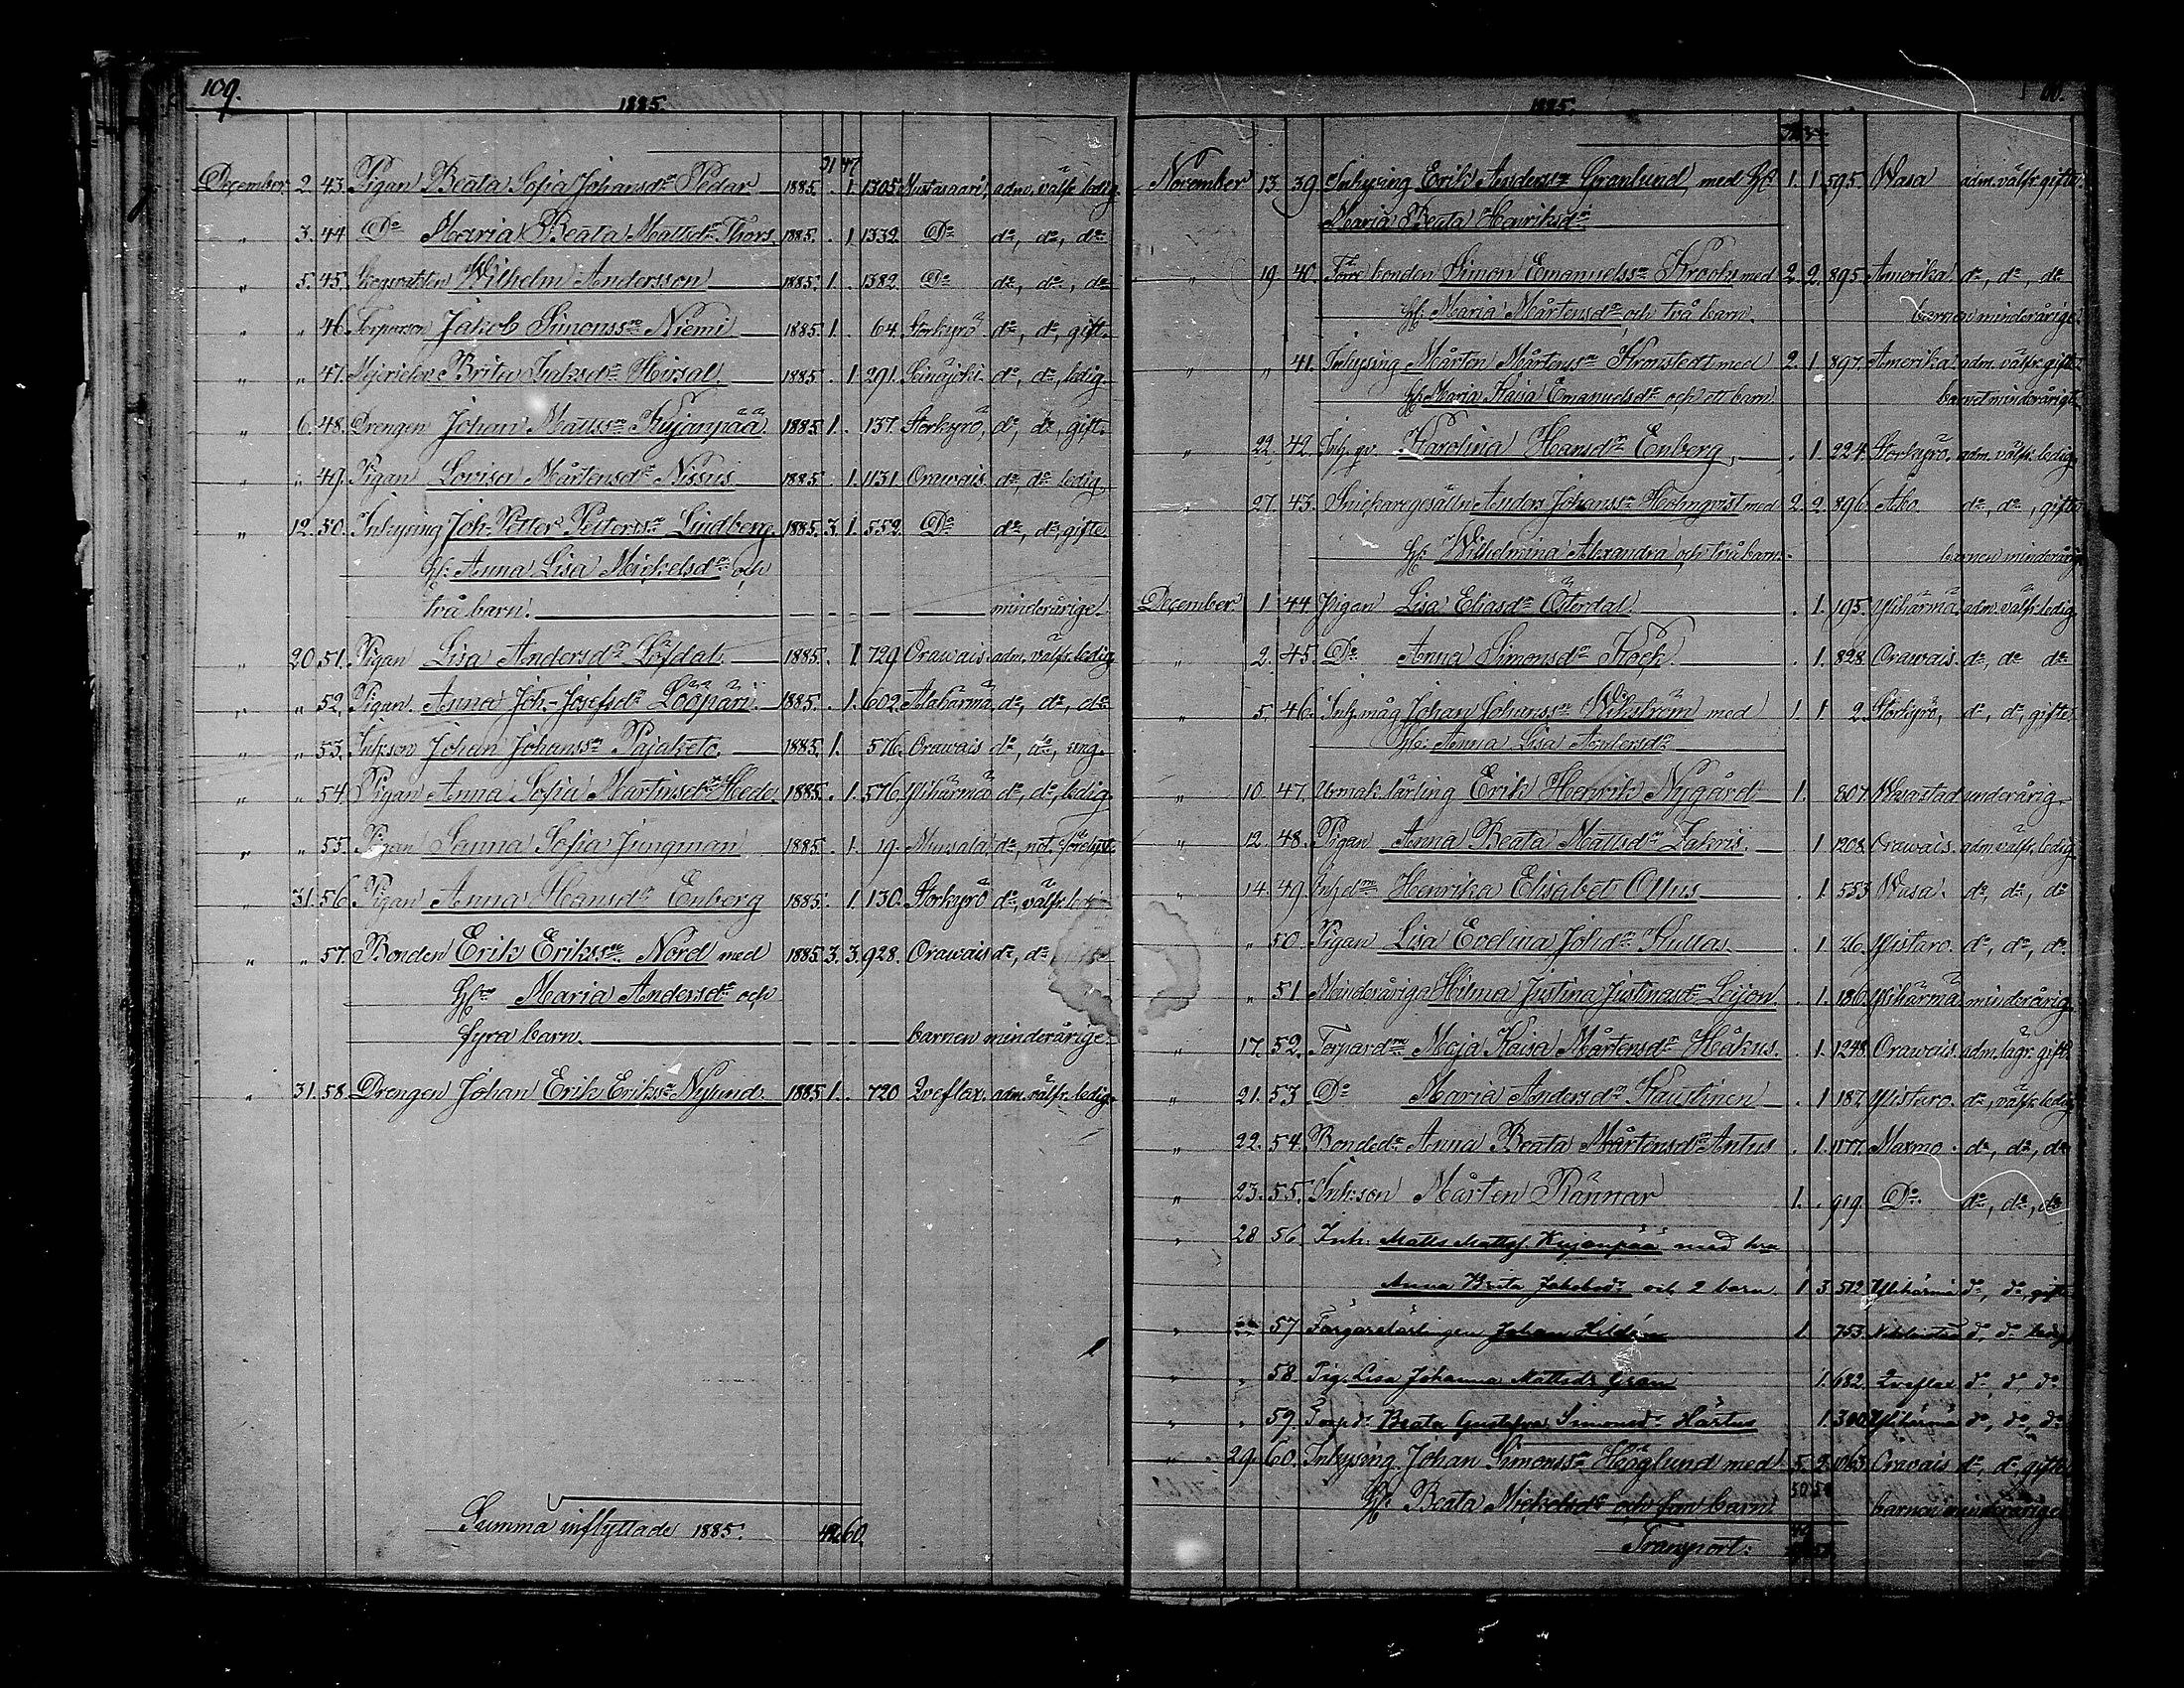 109.
1885.
31 47
December 2. 43. Pigan Beata Sofia Johansdr Pedar 1885. . 1. 1305. Mustasaari, adm. välfr. ledig
" 3. 44 Do Maria Beata Mattsdr Thors 1885. . 1 1332. Do do, do, do
" 5. 45. Skogvakten Wilhelm Andersson 1885. 1. . 1382. Do do, do, do
" " 46. Torparson Jakob Simonssn Niemi 1885. 1. . 64. Storkyrö do, do, gift.
" " 47. Mejerielev Brita Isaksdr Hirsal, 1885. . 1. 291. Seinäjoki. do, do, ledig.
" 6. 48. Drengen Johan Mattssn Kujanpää 1885. 1. . 137. Storkyrö, do, do, gift.
" " 49. Pigan Lovisa Mårtensdr Nissus 1885. . 1. 1131 Orawais. do, do ledig
" 12. 50. Inhysing Joh. Petter Petterssn Lindberg. 1885. 3. 1. 552. Do do, do, gifte
H: Anna Lisa Mickelsdr och
två barn. minderårige.
" 20. 51. Pigan Lisa Andersdr Löfdal. 1885. . 1 729 Orawais. adm. välfr. ledig
" " 52. Pigan. Anna Joh-Josefsdr Lööpäri 1885. . 1. 602. Alahärmä do, do, do
" " 53. Inh.son Johan Johanssn Pajaketo. 1885. 1. 576. Orawais do, do, ung.
" " 54. Pigan Anna Sofia Martinsdr Hede. 1885. . 1. 576. Ylihärmä do, do, ledig.
" " 55. Pigan Sanna Sofia Jungman 1885. . 1. 19. Munsala, do,
" 31. 56. Pigan Anna Hansdr Enberg 1885. . 1. 130. Storkyrö do, välfr. ledig
" " 57. Bonden Erik Erikssn Nord med 1885. 3. 3. 928. Orawais do, do
Maria Andersdr och
fyra barn. barnen minderårige.
" 31. 58. Drengen Johan Erik Erikssn Nylund. 1885. 1. . 720 Qveflax. adm. välfr. ledig.
Summa inflyttade 1885. 60.
1885.
November 13. 39 Inhysing Erik Anderssn Granlund med H: 1. 1. 595. Wasa adm. välfr. gifte
Maria Beata Henriksdr
" 19 40. Förre bonden Simon Emanuelssn Krook med 2. 2. 895. Amerika do, do, do
H: Maria Mårtensdr och två barn. barnen minderårige
" " 41. Inhysing Mårten Mårtenssn Kronstedt med 2. 1. 897. Amerika adm. välfr. gifte
H: Maria Kaisa Emanuelsdr och ett barn barnet minderårigt
" 22. 42. Inh. qv. Karolina Hansdr Enberg, . 1. 224. Storkyrö. adm. välfr. ledig
" 27. 43. Snickaregesälln Anders Johanssn Holmqvist med 2. 2. 896. Åbo. do, do, gifte
H: Wilhelmina Alexandra och två barn. barnen minderårige
December 1 44. Pigan Lisa Eliasdr Österdal . 1. 195. Ylihärmä. adm. välfr. ledig.
" 2. 45. Do Anna Simonsdr Kock. . 1. 828. Orawais. do, do do
" 5. 46. Inh. måg Johan Johanssn Wikström med 1. 1 2. Storkyrö, do, do, gifte.
H: Anna Lisa Andersdr
" 10. 47. Urmak. lärling Erik Henrik Nygård 1. 807. Wasa stad underårig.
" 12. 48. Pigan Anna Beata Mattsdr Zakris. . 1 1208. Orawais. adm. välfr. ledig
" 14. 49. Henrika Elisabet Ollus . 1. 553 Wasa. do, do, do
" " 50. Pigan Lisa Evelina Johdr Kulla . 1. 26. Ylistaro. do, do, do.
" " 51. Minderåriga Hilma Justina Justinasdr Leijon. . 1. 186. Ylihärmä minderårig.
" 17. 52. Maja Kaisa Mårtensdr Håkus. . 1. 1248. Orawais. adm. gift.
" 21. 53 Do Maria Andersdr Kaustinen . 1 187. Ylistaro. do, välfr. ledig
" 22. 54. Bondedr Anna Beata Mårtensdr Antus . 1. 1177. Maxmo. do, do, do
" 23. 55. Inh.son Mårten Rännar 1. . 919. Do. do, do, do
" 28 56. Inh. Matts Mattss. Kujanpää med hu
Anna Brita Jakobsdr och 2 barn. 1. 3. 512 Ylihärmä do, do, gifte
" " 57 Färgarelärlingen Johan Hildén 1. 753. do, do ledig
" " 58. Pig. Lisa Johanna Mattsdr Gran 1. 682. Qveflax do, do, do
" " 59. Torpdr Beata Gustafva Simonsdr Härtus 1. 300. Ylihärmä do, do, do
" 29. 60. Inhysing Johan Simonssn Höglund med 5. 2. 1063. Oravais do, do, gifte
H: Beata Mickelsdr och fem barn. barnen minderårige
Transport: